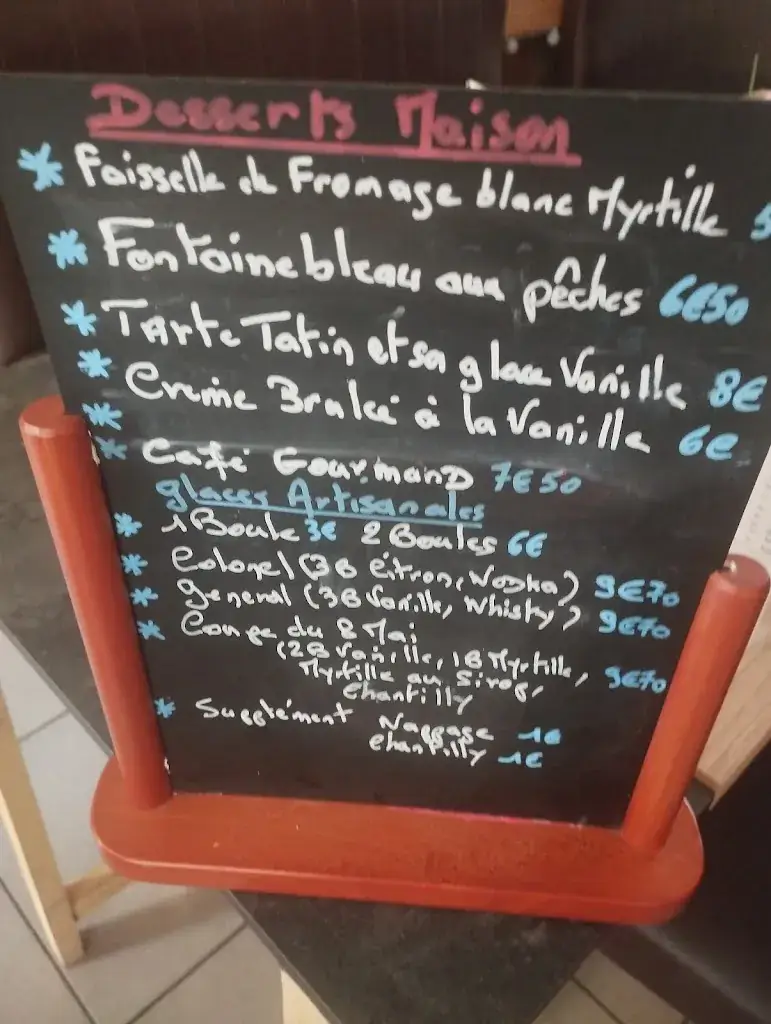 Desserts Maison
* Faisselle de Fromage blanc Myrtille 5
* Fontainebleau aux pêches 6€50
* Tarte Tatin et sa glace Vanille 8€
* Crème Brulée à la Vanille 6€
* Café Gourmand 7€50
glaces Artisanales
* 1 Boule 3€ 2 Boules 6€
* Colonel (3B Citron, Vodka) 9€70
* général (3B Vanille, Whisky) 9€70
* Coupe du 8 Mai
(2B Vanille, 1B Myrtille,
Myrtille au Sirop, 9€70
Chantilly
* Supplément Nappage 1€
Chantilly 1€